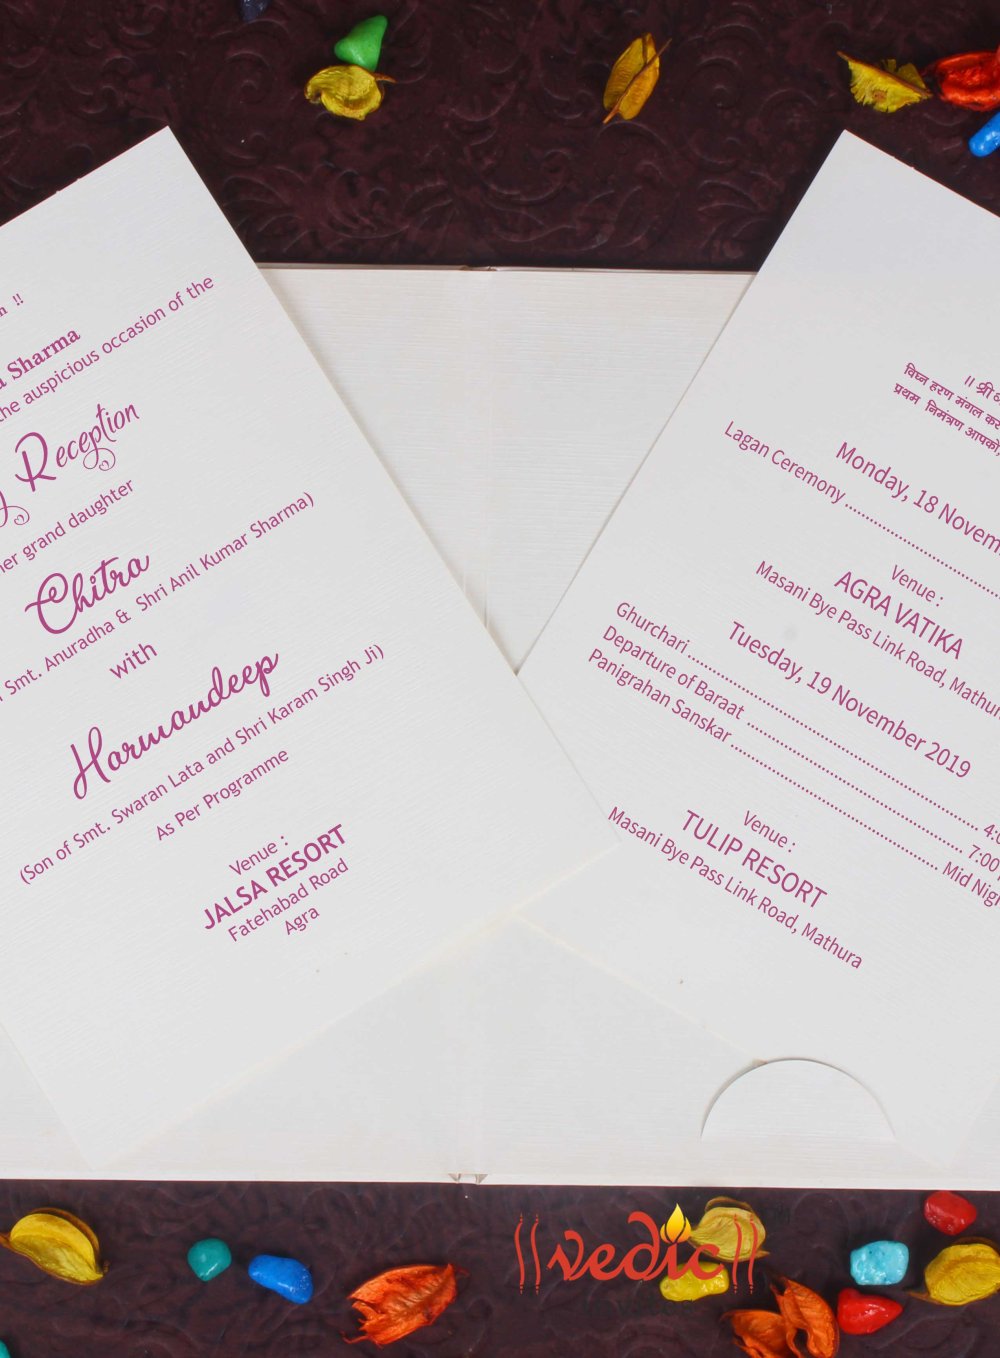 !!
Sharma
the auspicious occasion of the
Reception
her grand daughter
Chitra
Smt. Anuradha & Shri Anil Kumar Sharma)
with
Harmandeep
(Son of Smt. Swaran Lata and Shri Karam Singh Ji)
As Per Programme
Venue :
JALSA RESORT
Fatehabad Road
Agra
॥ श्री
विघ्न हरण मंगल
प्रथम निमंत्रण आपको,
Monday, 18
Lagan Ceremony ........................................
Venue :
AGRA VATIKA
Masani Bye Pass Link Road,
Tuesday, 19 November 2019
Ghurchari ........................................
Departure of Baraat ........................................ 7:00
Panigrahan Sanskar ........................................ Mid
Venue :
TULIP RESORT
Masani Bye Pass Link Road, Mathura
||vedic||